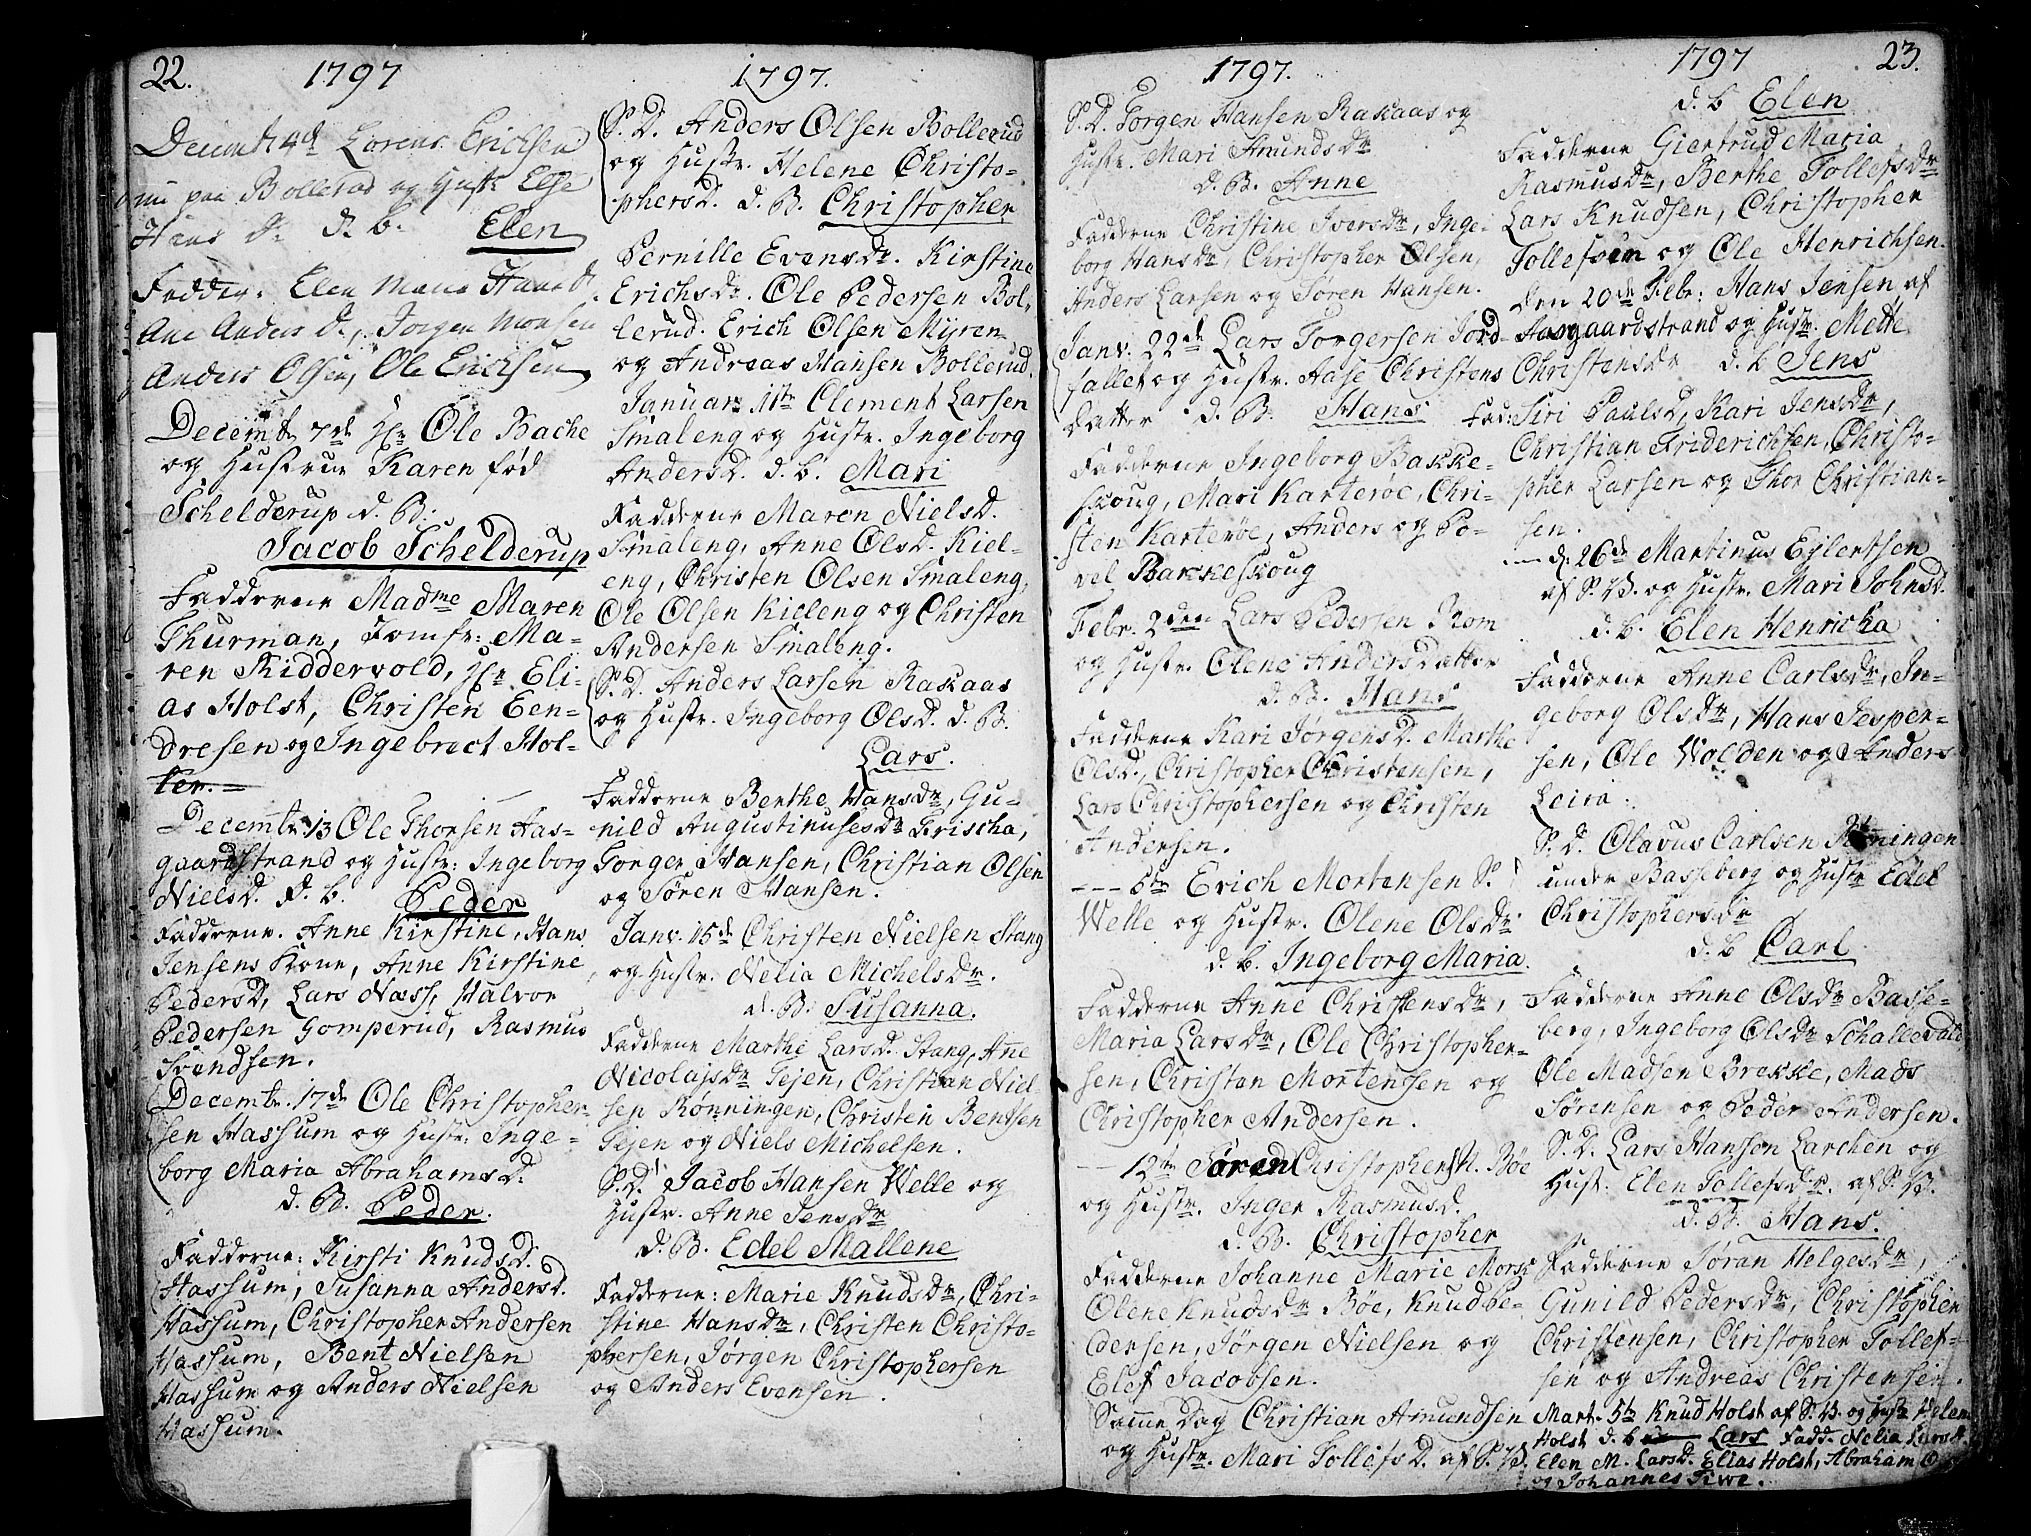 22. 1797
Decembr 4de Lorens Erichsen
nu paa Bollerud og Hustr Else
Hans Dr d. b. Elen
Fadder: Elen Maria Hans d.
Ane Anders d., Jorgen Monsen
Anders Olsen, Ole Erichsen
Decembr 7de Hr Ole Bache
og Hustrue Karen fød
Schelderup d. B.
Jacob Schelderup
Fadderne Madme Maren
Thurman, Jomfr: Ma-
ren Riddervold, Hr Eli-
as Holst, Christen Een-
dresen og Ingebrect Hol-
ter.
Decembr. 13 Ole Thorsen Aas-
gaardstrand og Hustr: Ingeborg
Nielsd. d. b. Peder
Fadderne. Anne Kirstine, Hans
Jensens Kone, Anne Kirstine
Pedersd, Lars Næss, Halvor
Pedersen Gomperud, Rasmus
Svendsen.
Decembr. 17de Ole Christopher-
sen Hassum og Hustr: Inge-
borg Maria Abrahamsd.
d. B. Peder.
Fadderne: Kirsti Knudsd.
Hassum, Susanna Andersd.
Hassum, Christopher Andersen
Hassum, Bent Nielsen
Hassum og Anders Nielsen
Hassum.
1797.
S. D. Anders Olsen Bollerud
og Hustr. Helene Christo-
phersd. d. B. Christopher
Pernille Evensdr. Kirstine
Erichsdr. Ole Pedersen Bol-
lerud. Erich Olsen Myren
og Andreas Hansen Bollerud.
Januar 11te Clement Larsen
Smaleng og Hustr. Ingeborg
Andersd. d. b. Mari
Fadderne Maren Nielsd.
Smaleng, Anne Olsd. Kiel-
eng, Christen Olsen Smaleng,
Ole Olsen Kieleng og Christen
Andersen Smaleng.
S. D. Anders Larsen Raskaas
og Hustr. Ingeborg Olsd. d. B.
Lars.
Fadderne Berthe Hansdr, Gu-
nild Augustinusesdr Frischa,
Torger Hansen, Christian Olsen
og Søren Hansen.
Janv. 15de Christen Nielsen Stang
og Hustr. Nelia Michelsdr.
d. B. Susanna.
Fadderne Marthe Larsd. Stang, Anne
Nicolajsdr Tejen, Christian Niel-
sen Rønningen, Christen Bentsen
Tejen og Niels Michelsen.
S. D. Jacob Hansen Welle og
Hustr. Anne Jensdr
d. B. Edel Mallene
Fadderne: Marie Knudsdr, Chri-
stine Hansdr, Christen Christo-
phersen, Jørgen Christophersen
og Anders Evensen.
1797.
S. D. Torgen Hansen Raskaas og
Hustr. Mari Amundsdr
d. B. Anne
Fadderne Christine Iversdr, Inge-
borg Hansdr, Christopher Olsen,
Anders Larsen og Søren Hansen.
Janv. 22de Lars Torgersen Jord-
fallet og Hustr. Aase Christens
Datter d. B. Hans
Fadderne Ingeborg Bakke-
skoug, Mari Karterøe, Chri-
sten Karterøe, Anders og Po-
vel Bakkeskoug
Febr. 2den Lars Pedersen Rom
og Hustr. Olene Andersdatter
d. B. Hans
Fadderne Kari Jorgensd. Marthe
Olsd., Christopher Christensen,
Lars Christophersen og Christen
Andersen.
--- 5te Erich Mortensen S.
Welle og Hustr. Olene Olsdr
d. b. Ingeborg Maria.
Fadderne Anne Christensdr,
Maria Larsdr, Ole Christopher-
sen, Christen Mortensen og
Christopher Andersen.
-- 12te Søren Christophers N. Bøe
og Hustr. Inger Rasmusd.
d. B. Christopher
Fadderne Johanne Marie Morsk
Olene Knudsdr Bøe, Knud Pe-
dersen, Jørgen Nielsen og
Elef Jacobsen.
Samme Dag Christian Amundsen
og Hustr. Mari Tollefsd. af S. B.
1797 23.
d. b Elen
Fadderne Giertrud Maria
Rasmusdr, Berthe Tollefsdr
Lars Knudsen, Christopher
Tollefsen og Ole Henrichsen.
Den 20de Febr: Hans Jensen af
Aasgaardstrand og Hustr. Mette
Christensdr d. b Jens
Fad: Siri Paulsd, Kari Jensdr,
Christian Friderichsen, Christo-
pher Larsen og Thor Christian-
sen.
--- d. 26de Martinus Ejlertsen
af S. B. og Hustr. Mari Johnsd.
d. b. Elen Henricka
Fadderne Anne Carlsdr, In-
geborg Olsdr, Hans Jesper-
sen, Ole Wolden og Anders
Leira.
S. D. Olavus Carlsen Røningen
under Basseberg og Hustr Edel
Christophersdr
d. b Carl.
Fadderne Anne Olsdr Basse-
berg, Ingeborg Olsdr Schallevald,
Ole Madsen Brekke, Mads
Sørensen og Peder Andersen.
S. D. Lars Hansen Larchen og
Hust. Elen Tollefsdr. af S. B.
d. B. Hans.
Fadderne Søran Helgesdr,
Gunild Pedersdr, Christopher
Christensen, Christopher Tollef-
sen og Andreas Christensen.
Mart. 5te Knud Holst af S. B. og Hustr Helene
Holst d. b Lars Fadd. Nelia Larsd.
Elen M. Larsd. Elias Holst, Abraham
og Johannes Tiwe.